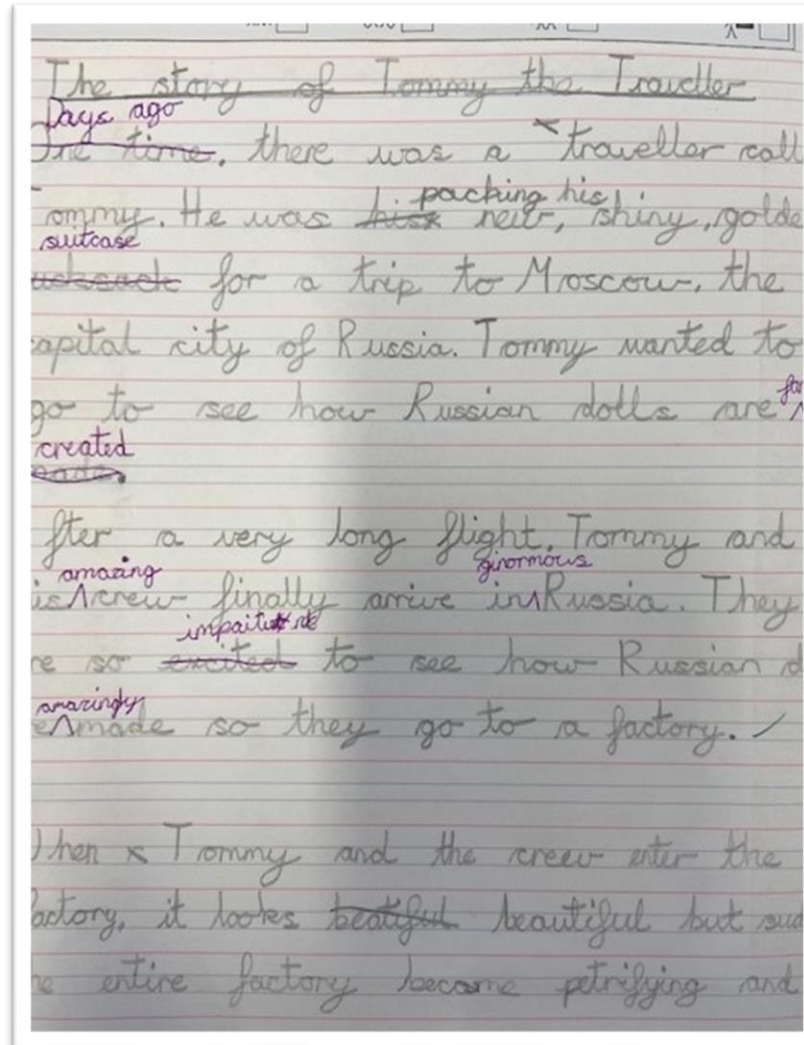 The story of Tommy the Traveller
Days ago
One time, there was a traveller call
ommy. He was packing his new, shiny, golde
suitcase
ucksack for a trip to Moscow, the
capital city of Russia. Tommy wanted to
go to see how Russian dolls are
created
made.
fter a very long flight, Tommy and
amazing ginormous
is crew finally arrive in Russia. They
re so excited to see how Russian d
amazingly
e made so they go to a factory.
When Tommy and the crew enter the
factory, it looks beatiful beautiful but sud
he entire factory become petrifying and